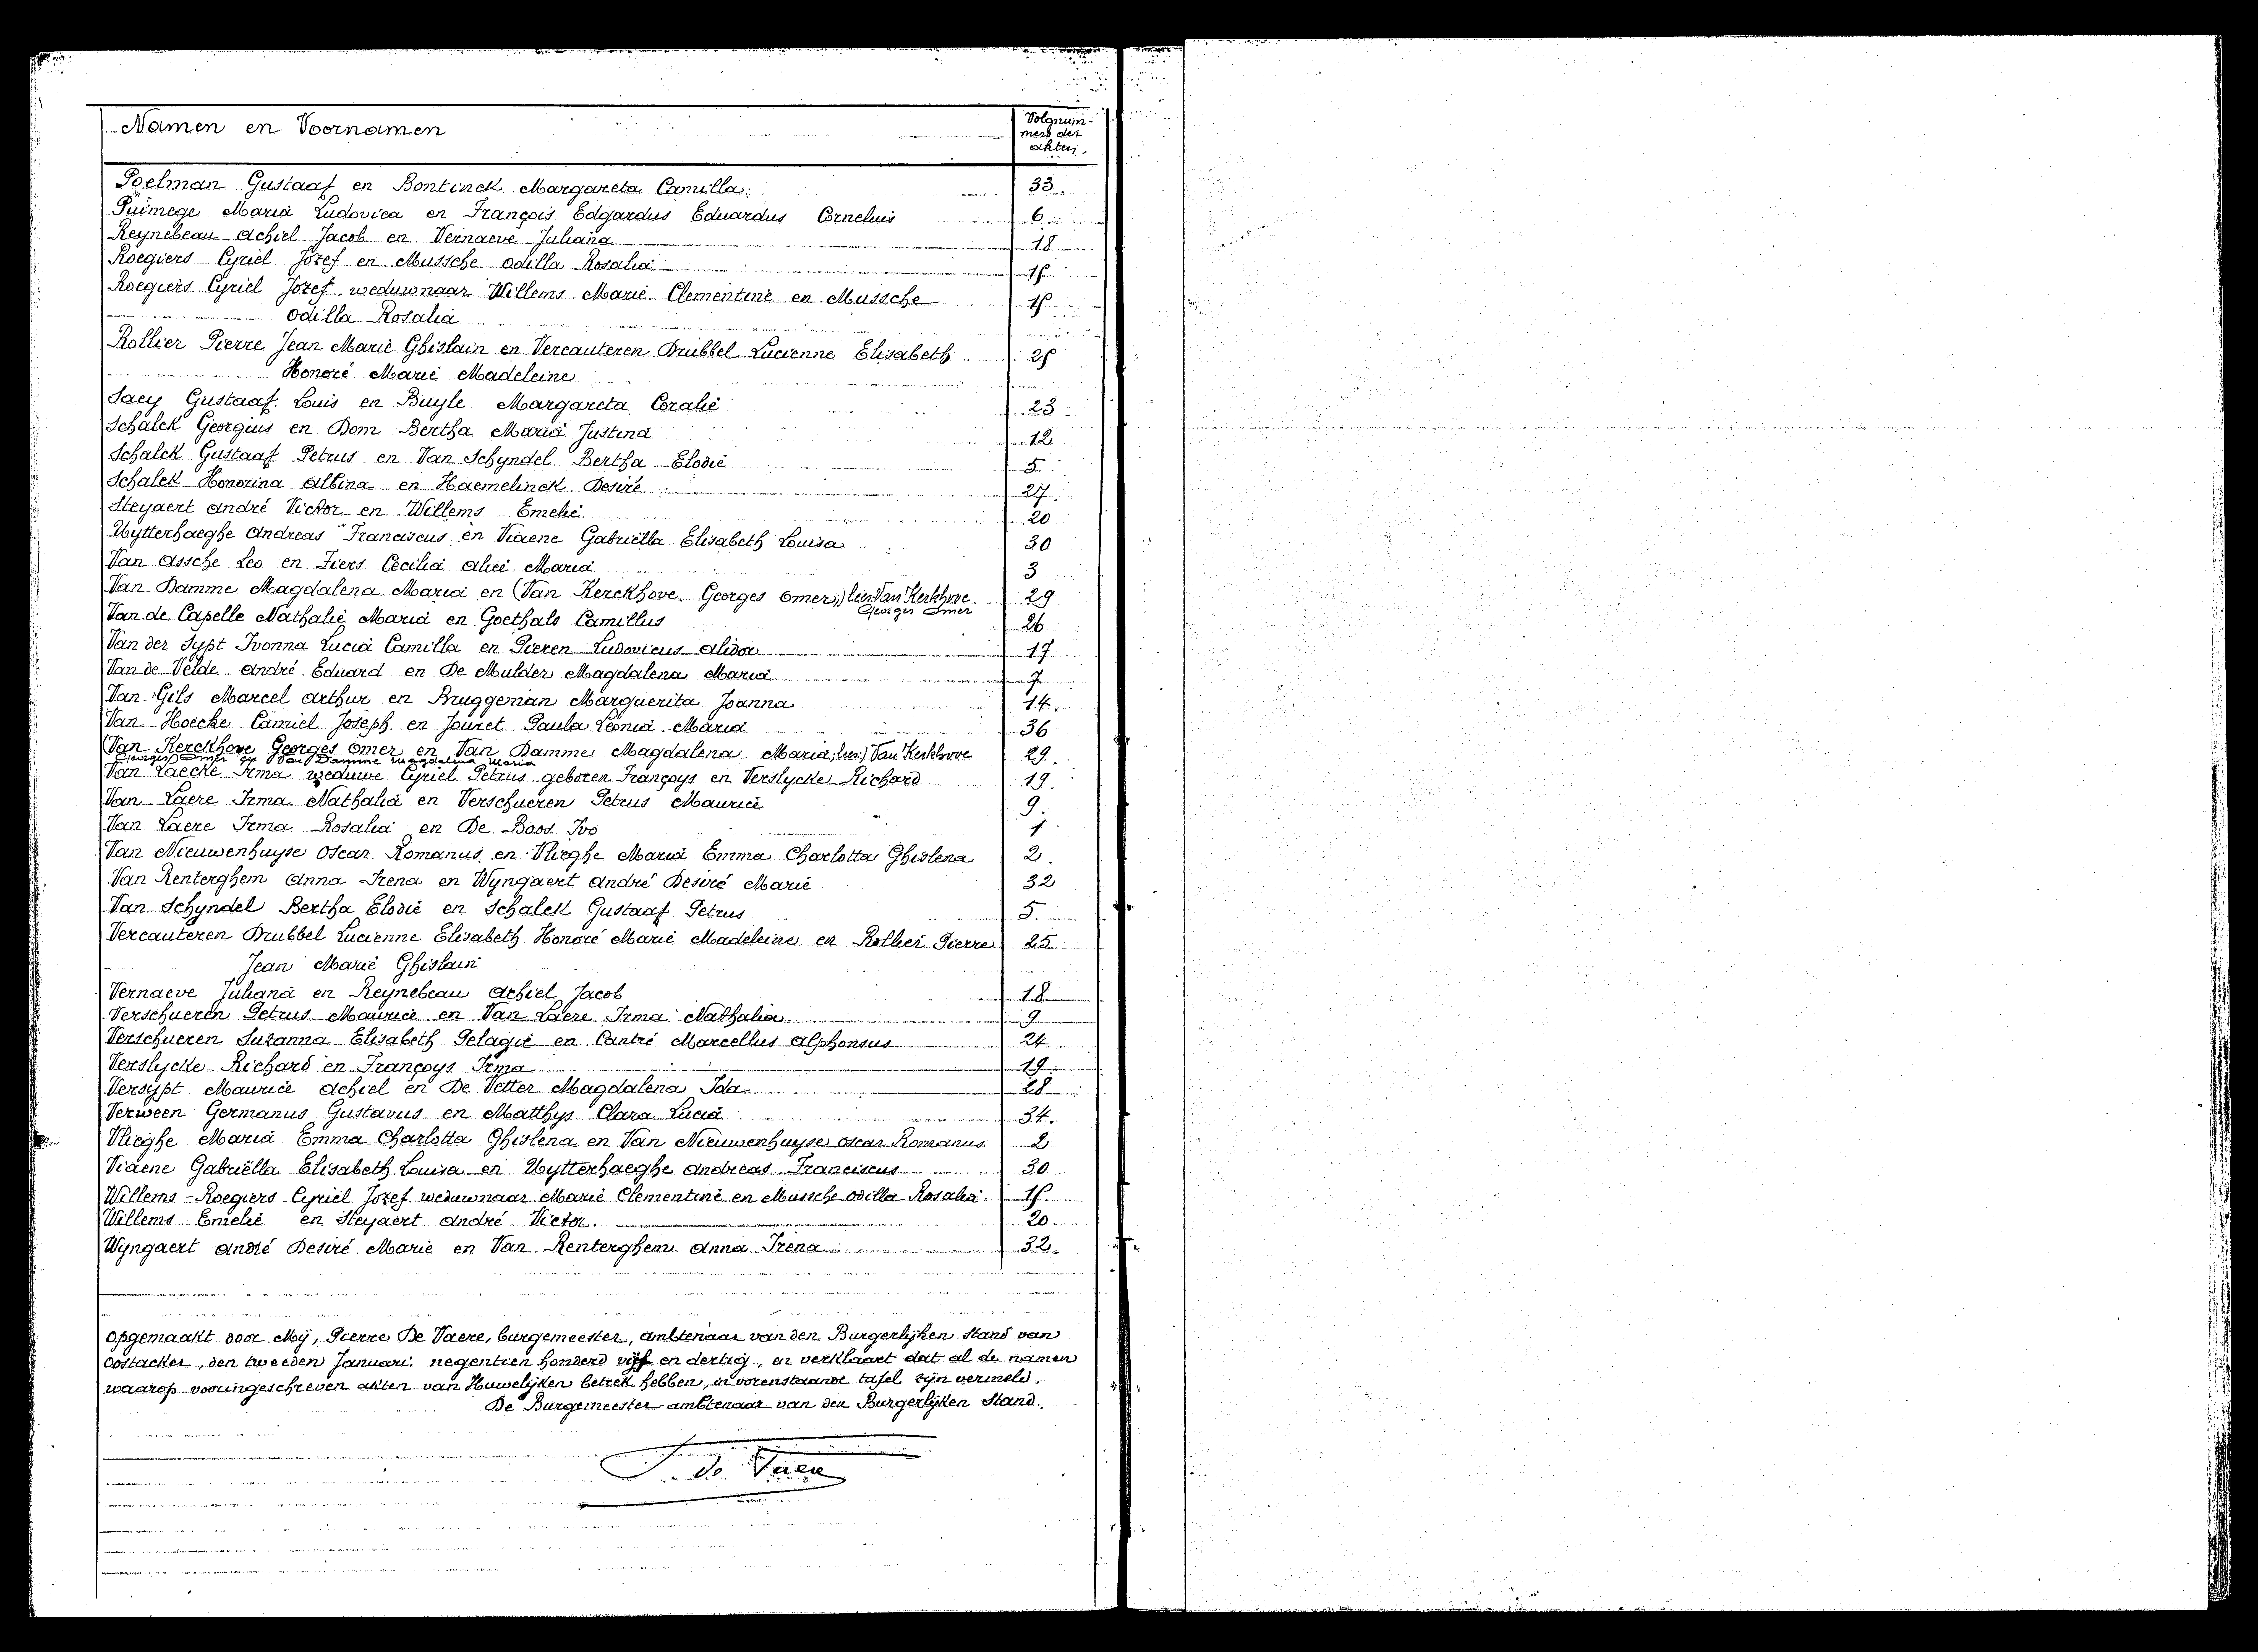 Namen en Voornamen
Volgnum-
mers der
akten.
Poelman Gustaaf en Bontinck Margareta Camilla. 33
Puimege Maria Ludovica en François Edgardus Eduardus Cornelius 6
Reynebeau Achiel Jacob en Vernaeve Juliana 18
Roegiers Cyriel Jozef en Mussche Odilla Rosalia 15
Roegiers Cyriel Jozef weduwnaar Willems Marie Clementine en Mussche 15
Odilla Rosalia
Rollier Pierre Jean Marie Ghislain en Vercauteren Drubbel Lucienne Elisabeth 25
Honoré Marie Madeleine
Saey Gustaaf Louis en Buyle Margareta Coralie 23
Schalck Georgius en Dom Bertha Maria Justina 12
Schalck Gustaaf Petrus en Van Schyndel Bertha Elodie 5
Schalck Honorina Albina en Haemelinck Desiré 27
Steyaert André Victor en Willems Emelie 20
Uytterhaeghe Andreas Franciscus en Viaene Gabriëlla Elisabeth Louisa 30
Van Assche Leo en Fiers Cecilia Alice Maria 3
Van Damme Magdalena Maria en (Van Kerckhove Georges Omer;) lees Van Kerkhove 29
Georges Omer
Van de Capelle Nathalie Maria en Goethals Camillus 26
Van der Sypt Ivonna Lucia Camilla en Pieren Ludovicus Alidor 17
Van de Velde André Eduard en De Mulder Magdalena Maria 7
Van Gils Marcel Arthur en Bruggeman Marguerita Joanna 14
Van Hoecke Camiel Joseph en Jouret Paula Leonia Maria 36
(Van Kerckhove Georges Omer en Van Damme Magdalena Maria; lees:) Van Kerkhove 29
Georges Omer en Van Damme Magdalena Maria
Van Laecke Irma weduwe Cyriel Petrus geboren Françoys en Verslycke Richard 19.
Van Laere Irma Nathalia en Verschueren Petrus Maurice 9.
Van Laere Irma Rosalia en De Boos Ivo 1
Van Nieuwenhuyse Oscar Romanus en Vlieghe Maria Emma Charlotta Ghislena 2.
Van Renterghem Anna Irena en Wyngaert André Desiré Marie 32
Van Schyndel Bertha Elodie en Schalck Gustaaf Petrus 5
Vercauteren Drubbel Lucienne Elisabeth Honoré Marie Madeleine en Rollier Pierre 25
Jean Marie Ghislain
Vernaeve Juliana en Reynebeau Achiel Jacob 18
Verschueren Petrus Maurice en Van Laere Irma Nathalia 9
Verschueren Suzanna Elisabeth Pelagie en Cantré Marcellus Alphonsus 24
Verslycke Richard en Françoys Irma 19
Versypt Maurice Achiel en De Vetter Magdalena Ida 28
Verween Germanus Gustavus en Matthys Clara Lucia 34.
Vlieghe Maria Emma Charlotta Ghislena en Van Nieuwenhuyse Oscar Romanus 2
Viaene Gabriëlla Elisabeth Louisa en Uytterhaeghe Andreas Franciscus 30
Willems-Roegiers Cyriel Jozef weduwnaar Marie Clementine en Mussche Odilla Rosalia. 15.
Willems Emelie en Steyaert André Victor. 20
Wyngaert André Desiré Marie en Van Renterghem Anna Irena 32.
Opgemaakt door Mij, Pierre De Vaere, burgemeester, ambtenaar van den Burgerlijken Stand van
Oostacker, den tweeden Januari, negentien honderd vijf en dertig, en verklaart dat al de namen
waarop vooringeschreven akten van Huwelijken betrek hebben, in vorenstaande tafel zijn vermeld.
De Burgemeester ambtenaar van den Burgerlijken Stand.
P. De Vaere